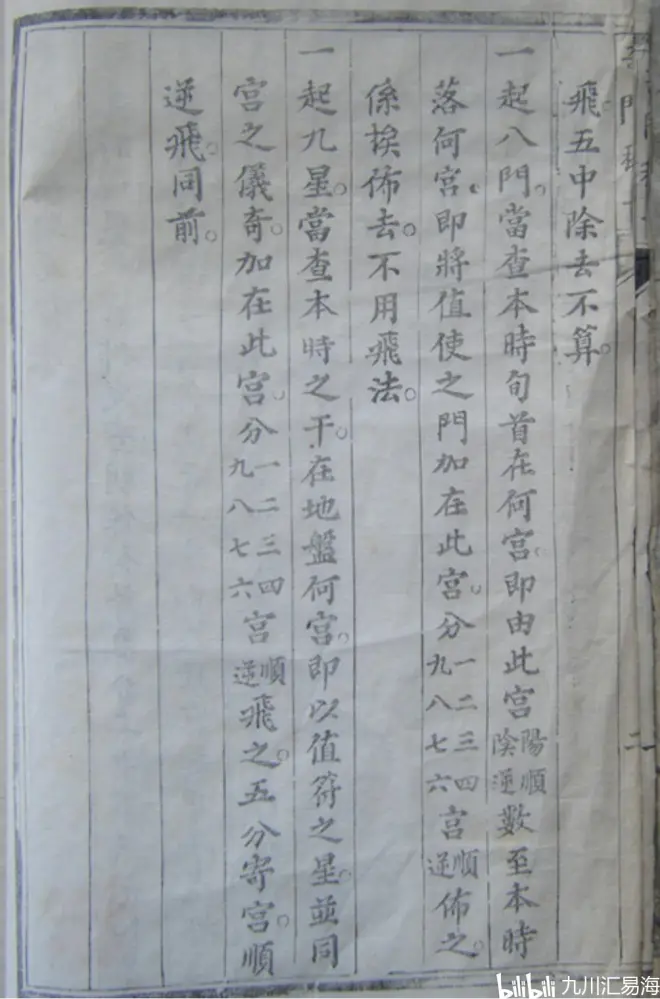 飛五中除去不算。
一起八門。當查本時旬首在何宮。即由此宮陽順陰逆數至本時
落何宮。即將值使之門加在此宮。分一二三四九八七六宮順逆佈之。
係挨佈去。不用飛法。
一起九星。當查本時之干。在地盤何宮。即以值符之星。並同
宮之儀奇。加在此宮。分一二三四九八七六宮順逆飛之。五分寄宮。順
逆飛同前。
二
bilibili 九川汇易海